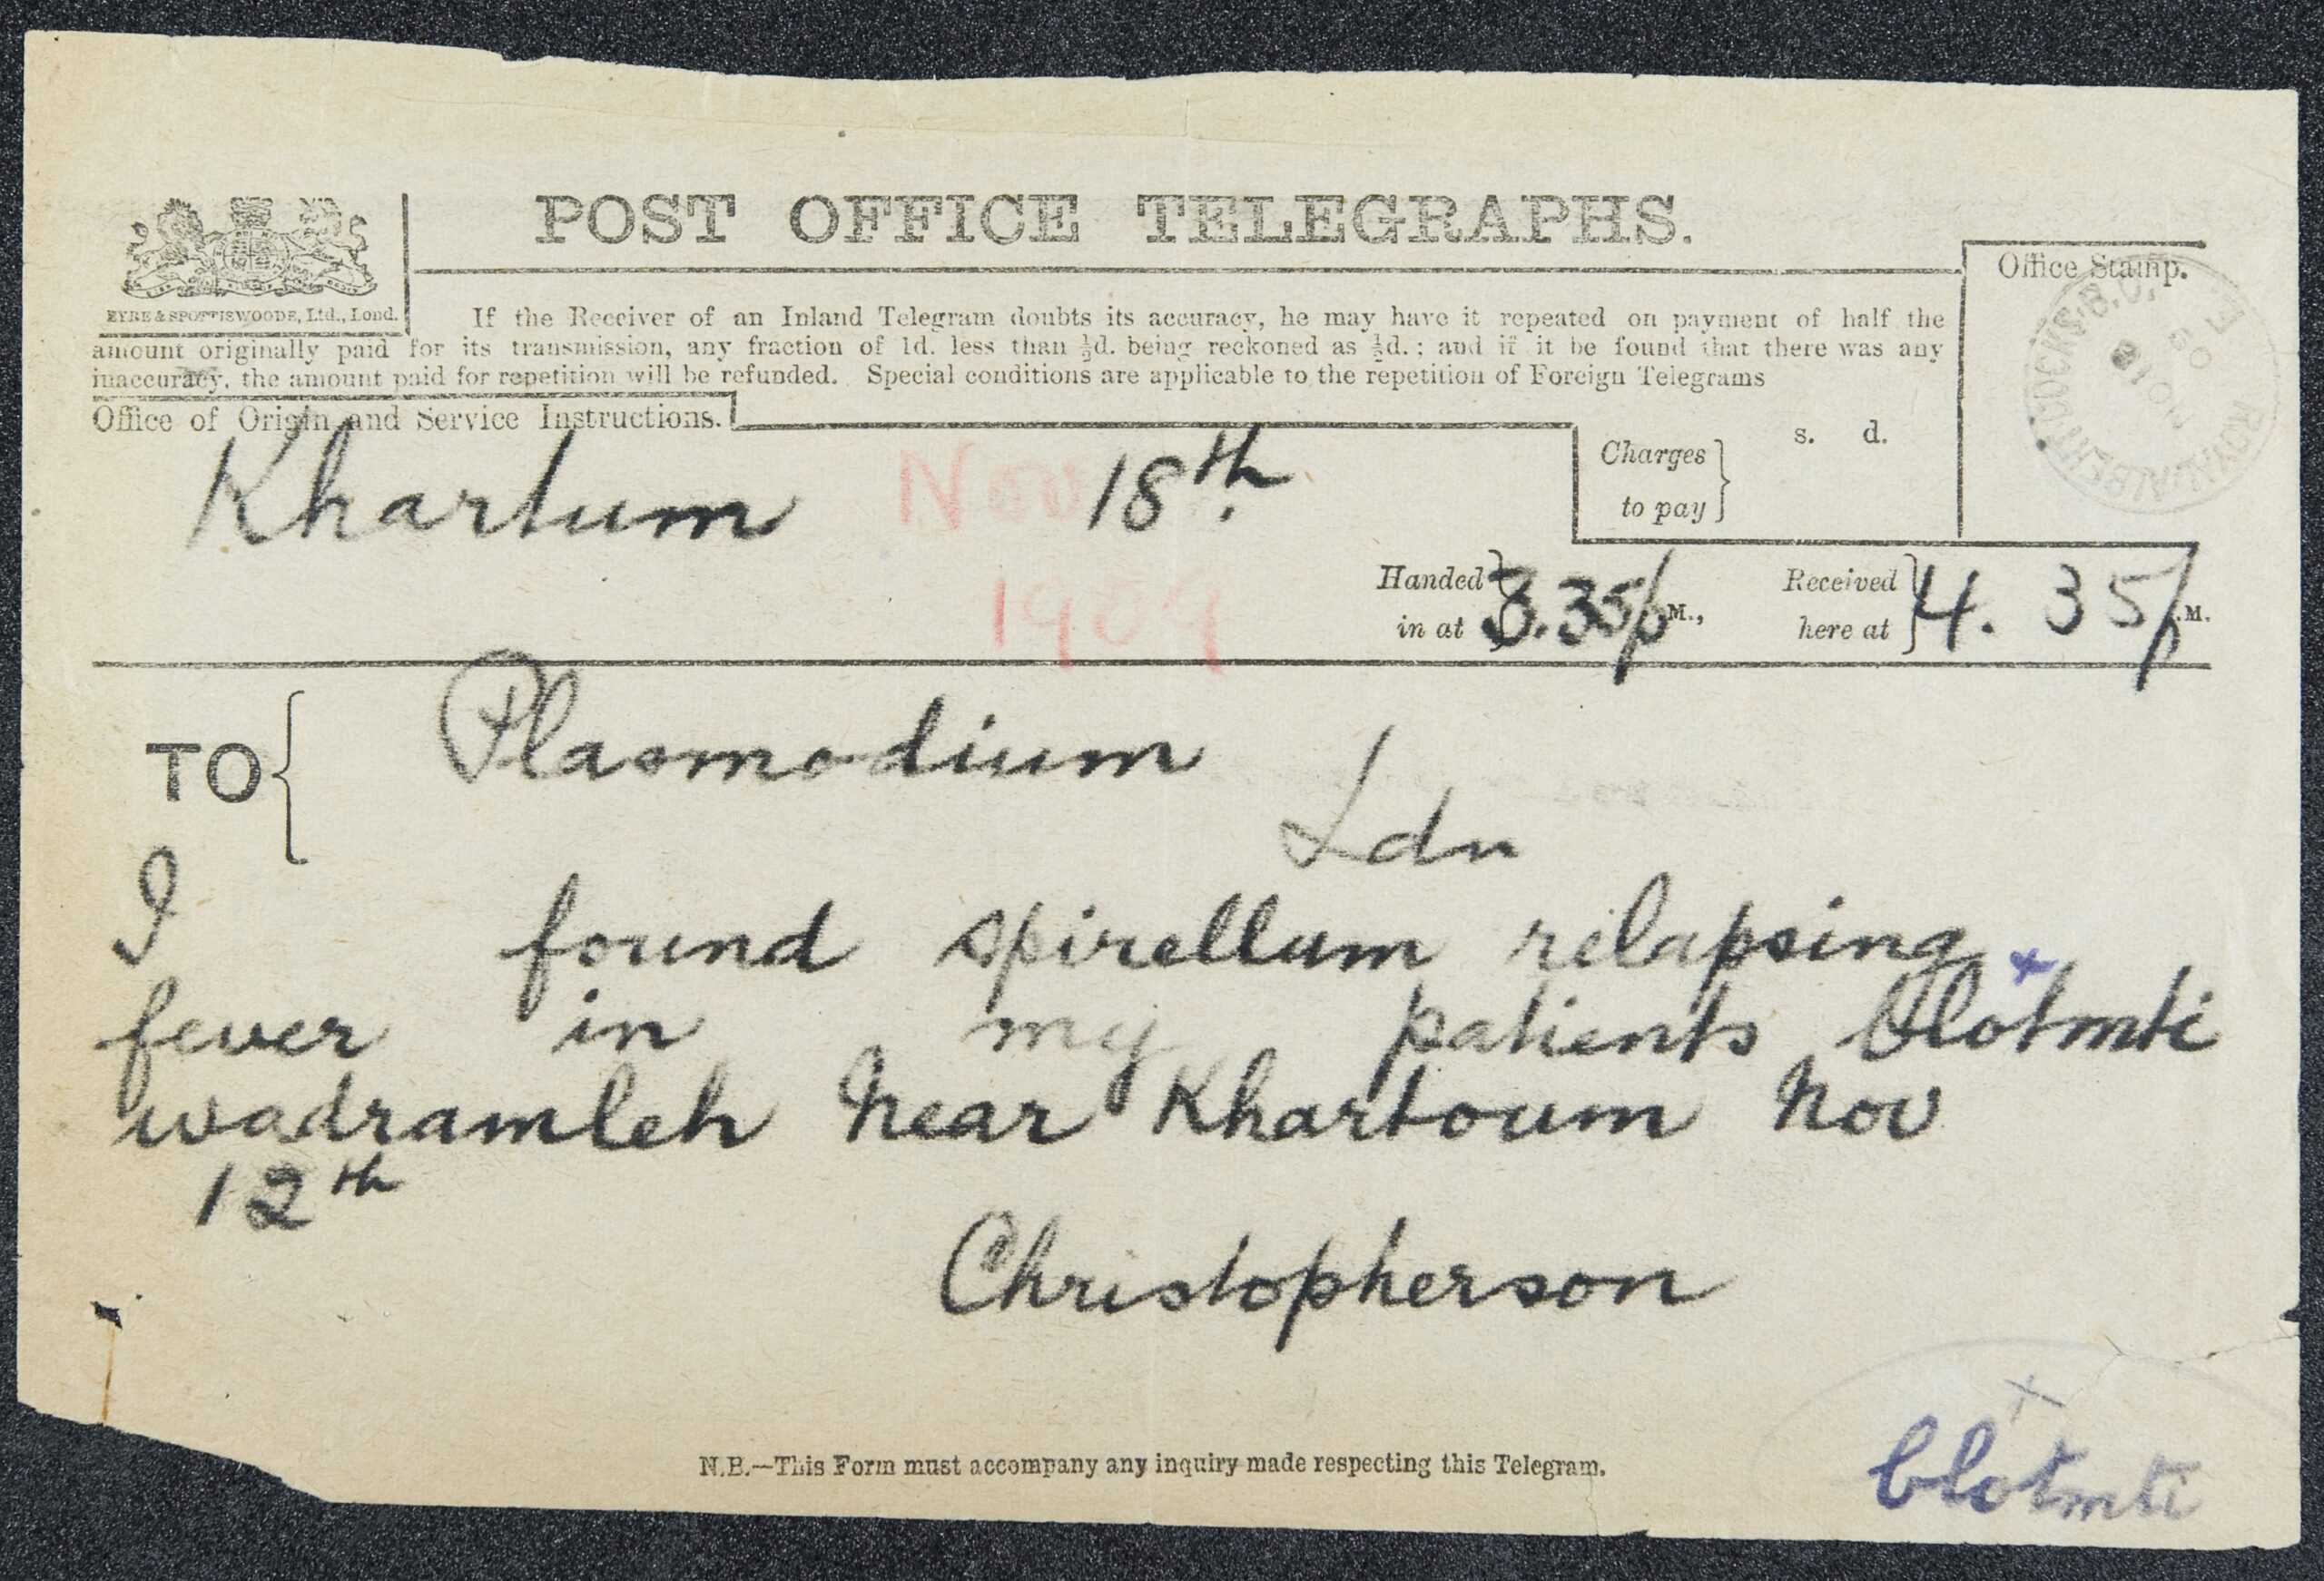 POST OFFICE TELEGRAPHS.
EYRE & SPOTTISWOODE, Ltd., Lond.
Office Stamp.
ROYAL ALBERT DOCKS. B.O. E
NO 18
09
If the Receiver of an Inland Telegram doubts its accuracy, he may have it repeated on payment of half the
amount originally paid for its transmission, any fraction of 1d. less than ½d. being reckoned as ½d.; and if it be found that there was any
inaccuracy, the amount paid for repetition will be refunded. Special conditions are applicable to the repetition of Foreign Telegrams
Office of Origin and Service Instructions.
Charges to pay } s. d.
Khartum Nov 18th.
1909
Handed in at } 3.35p M.,
Received here at } 4.35p .M.
TO { Plasmodium
Ldn
I found spirellum relapsing
fever in my patients blotmti
wadramleh near Khartoum Nov
12th
Christopherson
x
blotmti
N.B.—This Form must accompany any inquiry made respecting this Telegram.